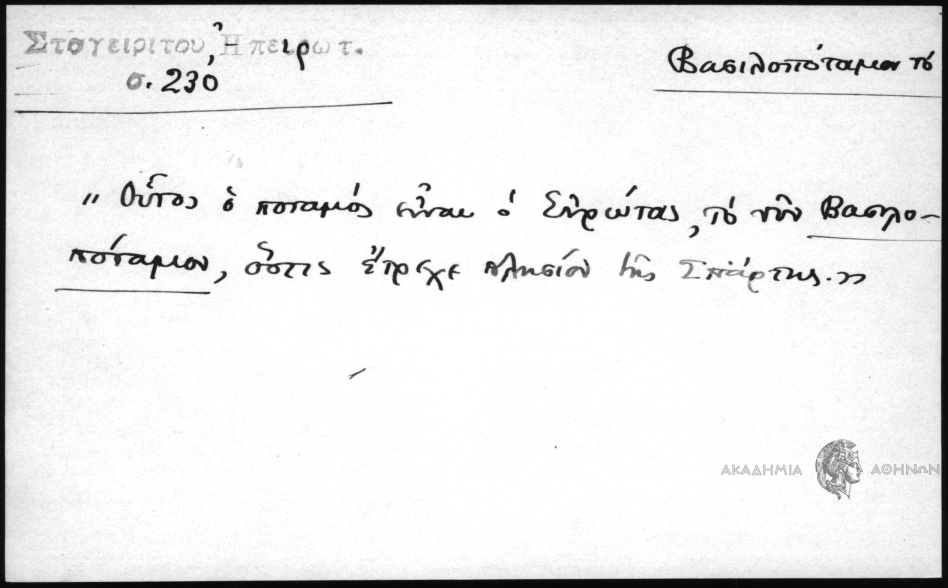 Σταγειρίτου Ἠπειρωτ.
σ. 230
Βασιλοπόταμον τό
„ Οὗτος ὁ ποταμός εἶναι ὁ Εὐρώτας, τό νῦν Βασιλο-
πόταμον, ὅστις ἔτρεχε πλησίον τῆς Σπάρτης. ”
ΑΚΑΔΗΜΙΑ ΑΘΗΝΩΝ